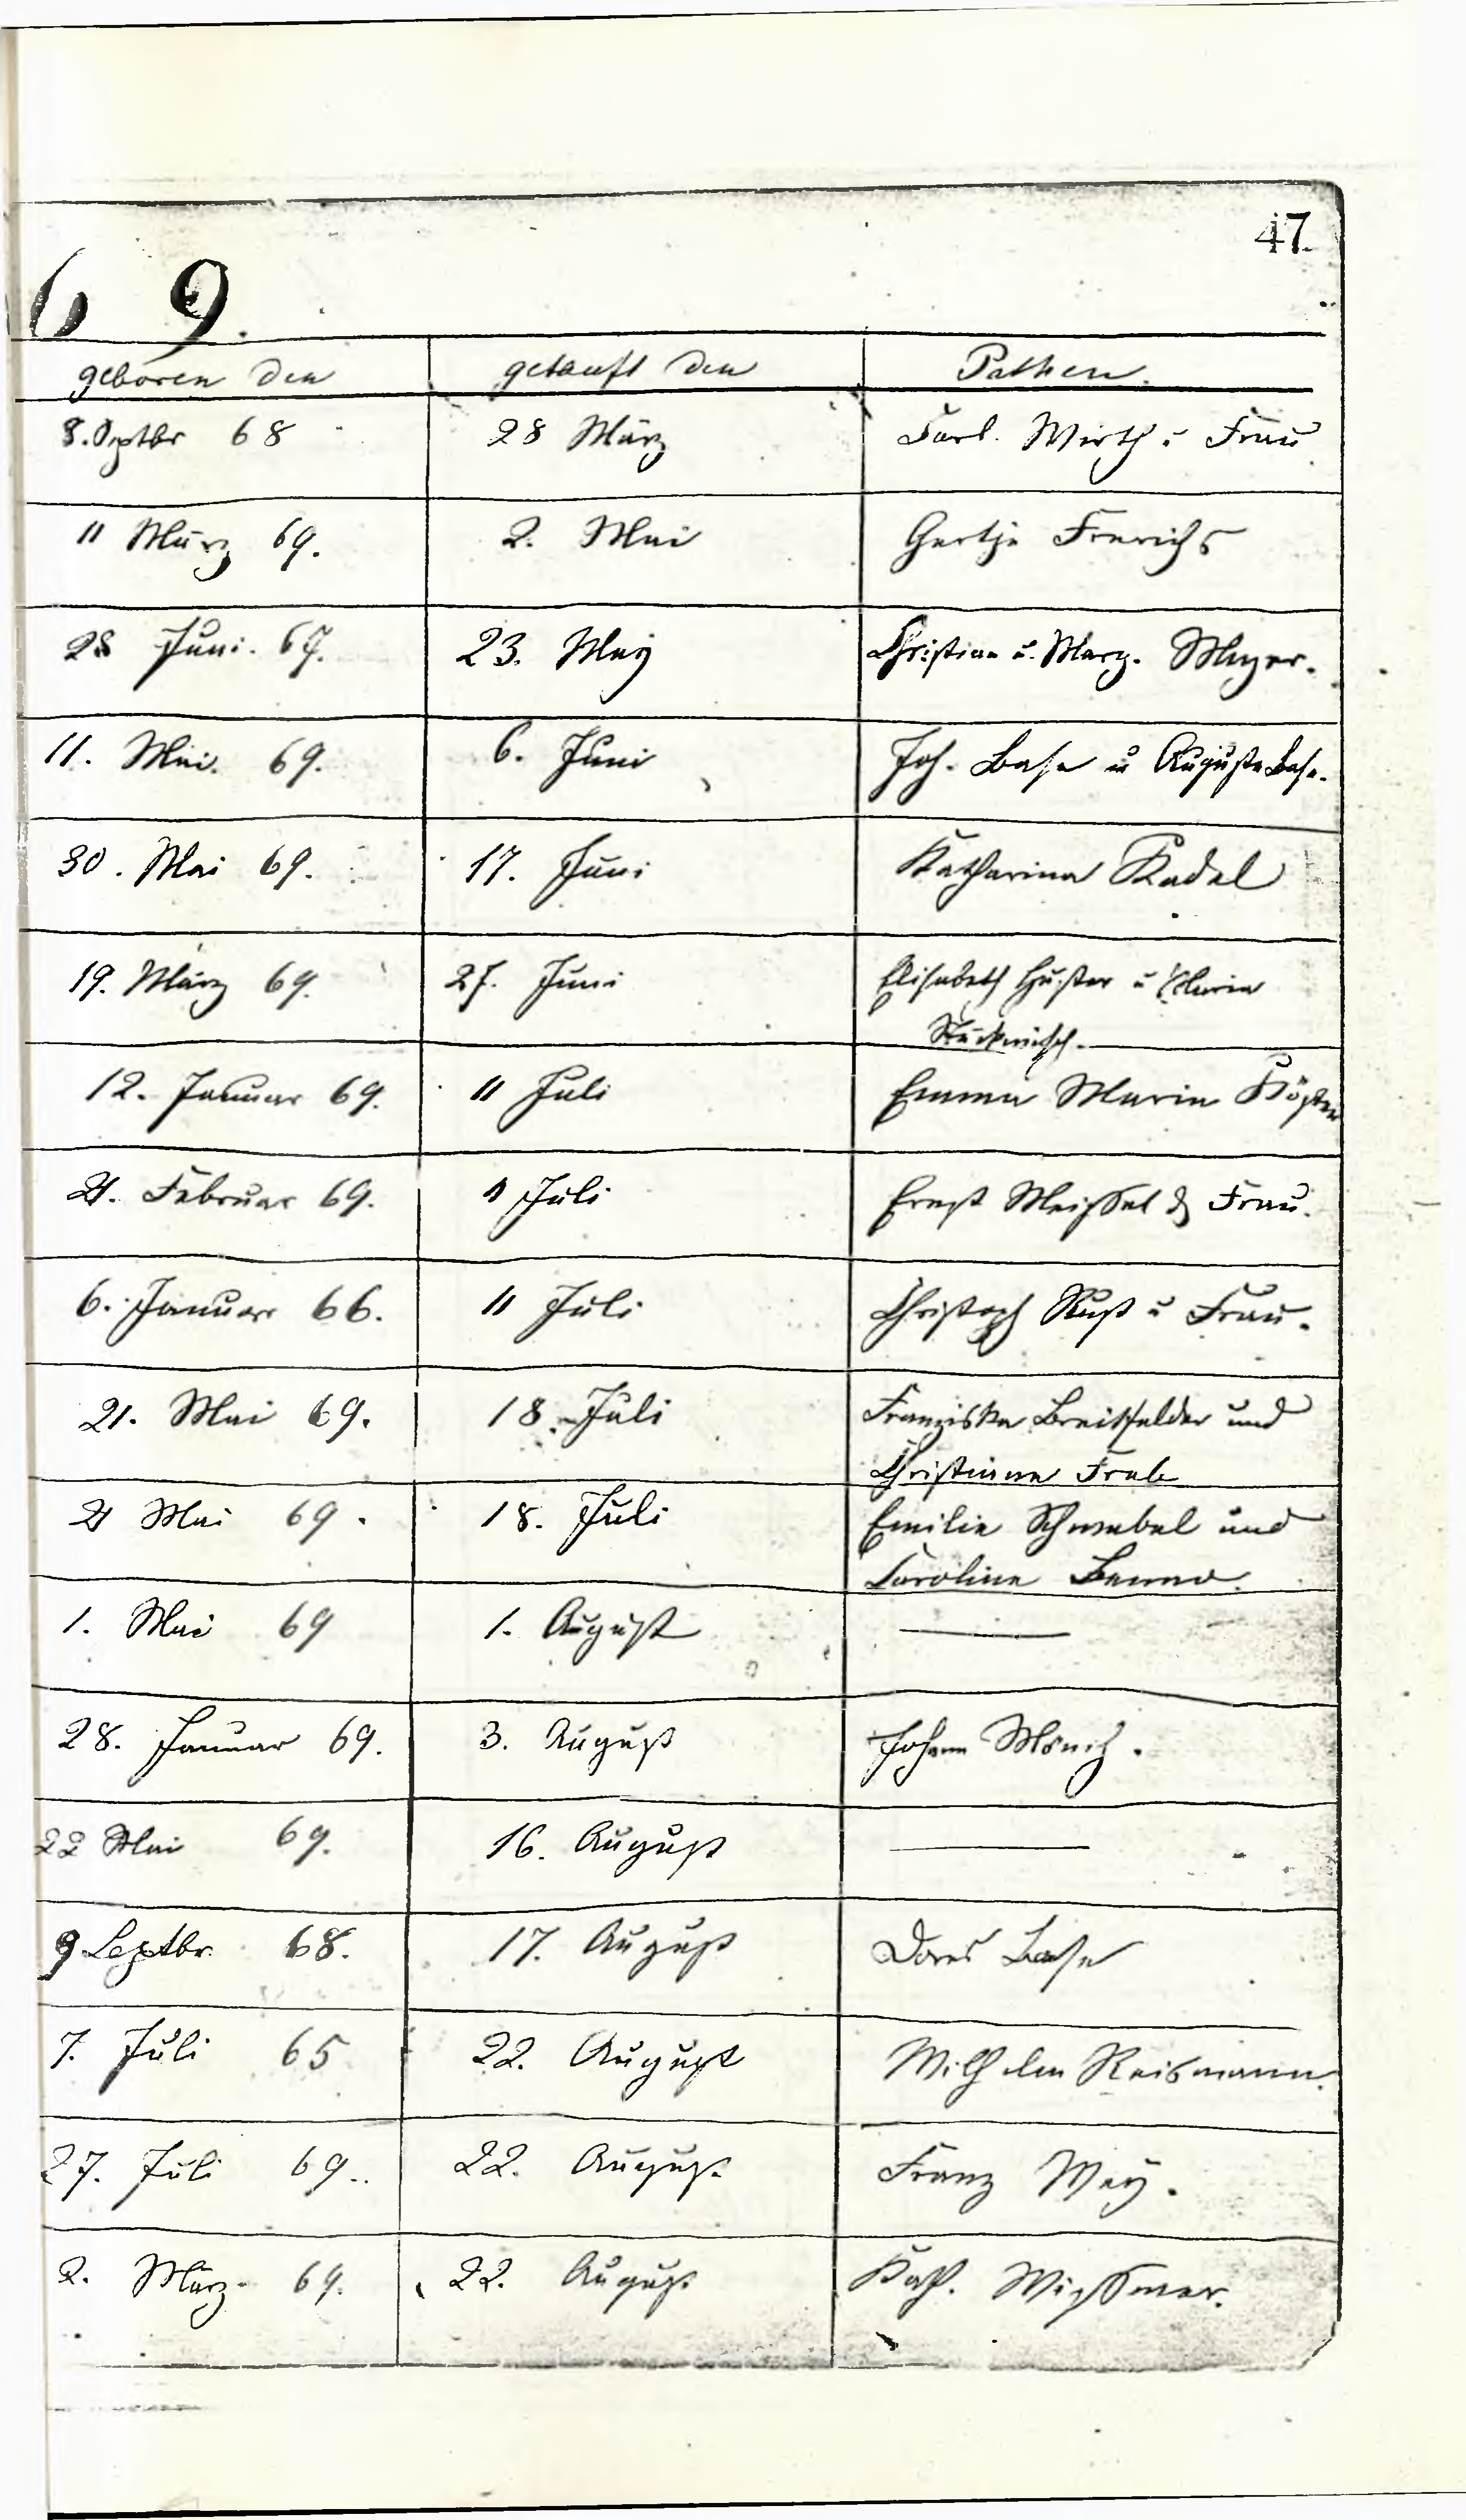 47
6 9.
geboren den getauft den Pathen.
8. Septbr 68 28 März Carl. Wirth u Frau
11 März 69. 2. Mai Gertje Frerichs
28 Juni. 67. 23. May Christian u. Marg. Meyer.
11. Mai. 69. 6. Juni Joh. Base u Auguste Base.
30. Mai 69. 17. Juni Katharina Kadel
19. März 69. 27. Juni Elisabeth Huster u Maria
12. Januar 69. 11 Juli Emma Maria
21. Februar 69. 11 Juli Ernst Meissel & Frau.
6. Januar 66. 11 Juli Christoph Rust u Frau.
21. Mai 69. 18. Juli Franziska Breitfelder und
Christiana
21 Mai 69. 18. Juli Emilie Schwebel und
Caroline
1. Mai 69 1. August —
28. Januar 69. 3. August Johann Mönch.
22 Mai 69. 16. August —
9 Septbr. 68. 17. August Dores Base
7. Juli 65 22. August Wilhelm Reismann.
27. Juli 69.. 22. August Franz Mey.
2. März 69. 22. August Kath. Wissmer.